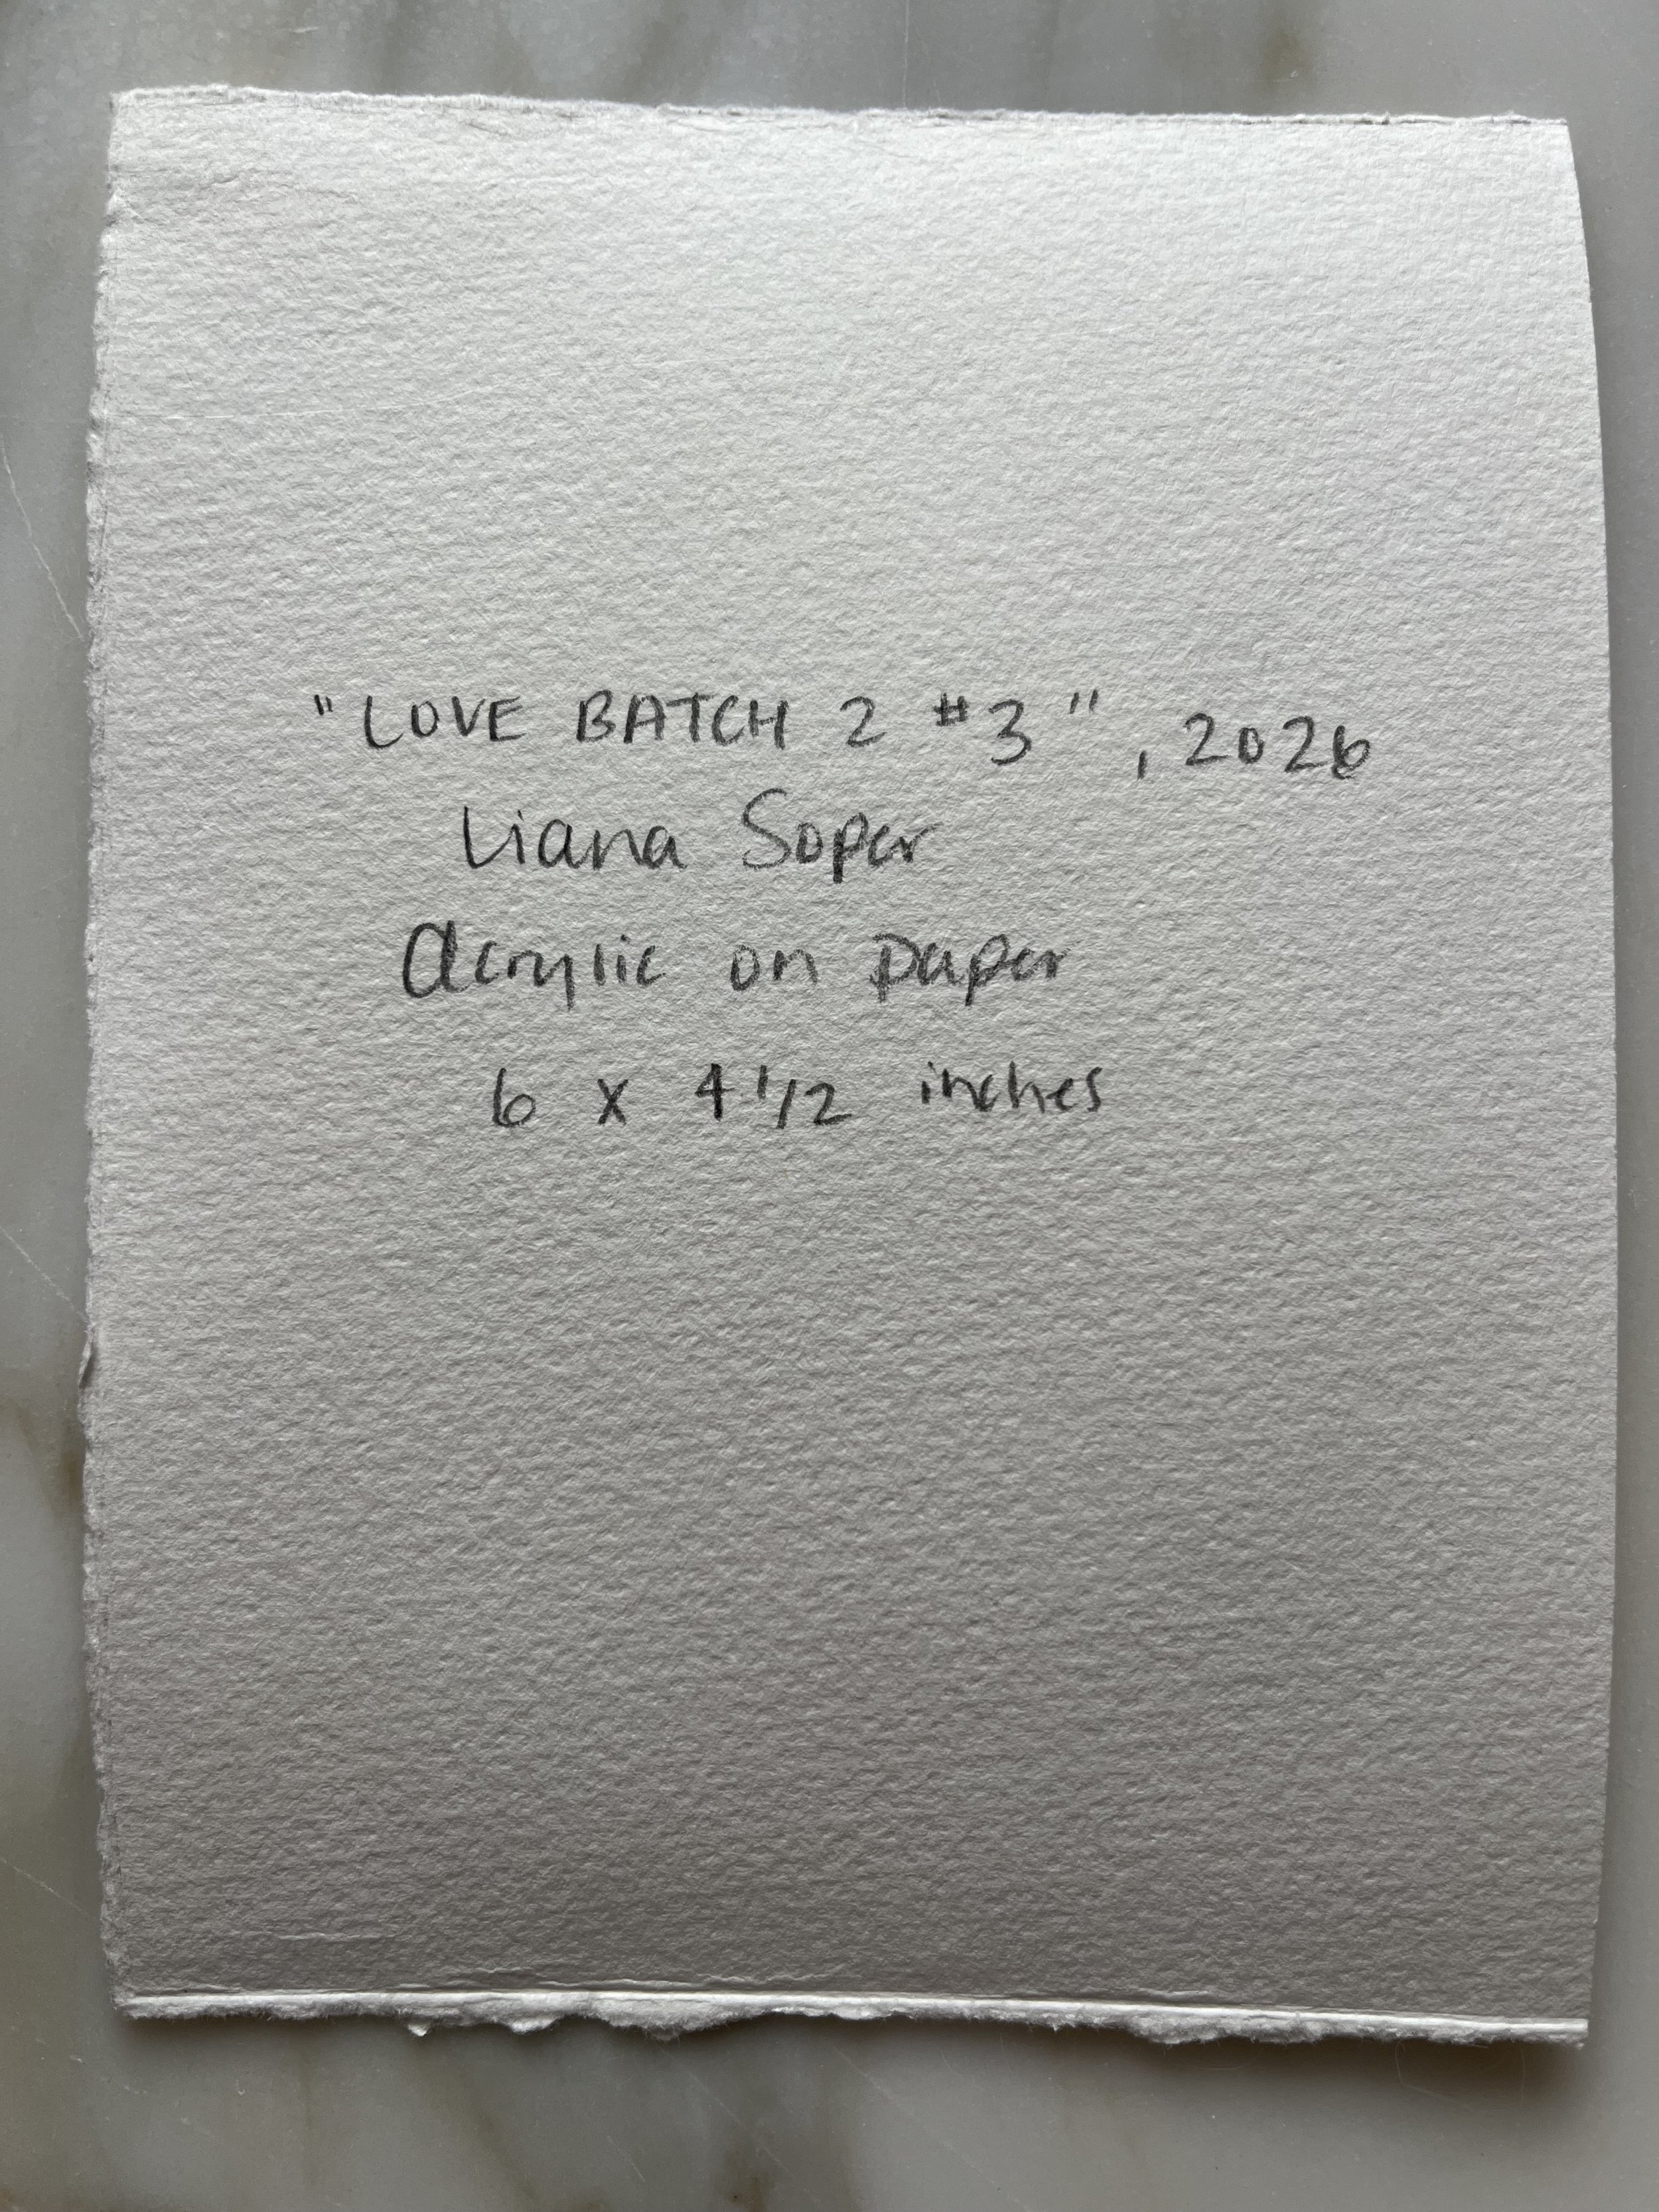 "LOVE BATCH 2 #3", 2026
Liana Soper
Acrylic on paper
6 x 4 1/2 inches